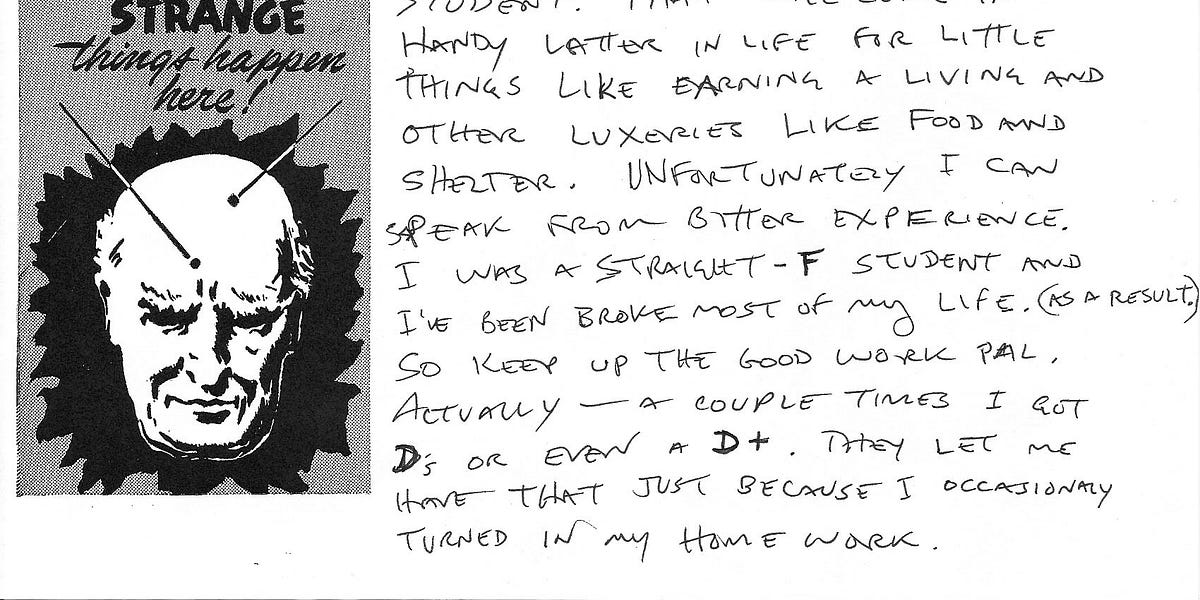 STRANGE
things happen
here!
STUDENT. THAT WILL COME IN
HANDY LATTER IN LIFE FOR LITTLE
THINGS LIKE EARNING A LIVING AND
OTHER LUXERIES LIKE FOOD AND
SHELTER. UNFORTUNATELY I CAN
SPEAK FROM BITTER EXPERIENCE.
I WAS A STRAIGHT-F STUDENT AND
I'VE BEEN BROKE MOST OF MY LIFE. (AS A RESULT.)
SO KEEP UP THE GOOD WORK PAL.
ACTUALLY — A COUPLE TIMES I GOT
D's OR EVEN A D+. THEY LET ME
HAVE THAT JUST BECAUSE I OCCASIONALY
TURNED IN MY HOME WORK.